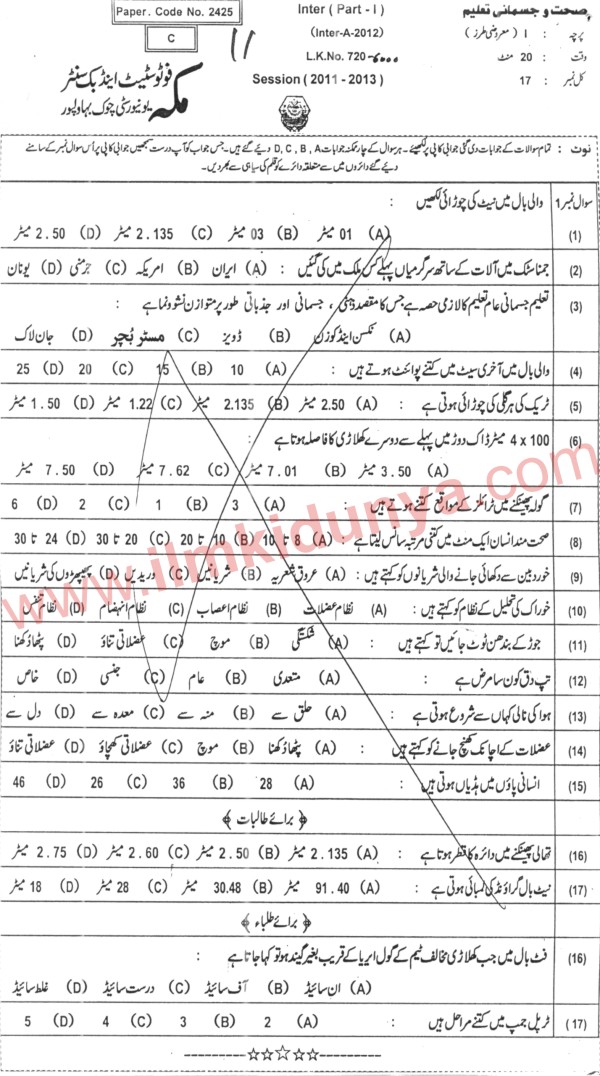 Paper. Code No. 2425
C
11
Inter ( Part - I )
(Inter-A-2012)
L.K.No. 720-6000
Session ( 2011 - 2013 )
صحت و جسمانی تعلیم
پرچہ : I ( معروضی طرز )
وقت : 20 منٹ
کل نمبر : 17
مکہ فوٹوسٹیٹ اینڈ بک سنٹر
یونیورسٹی چوک بہاولپور
نوٹ : تمام سوالات کے جوابات دی گئی جوابی کاپی پر لکھیئے ۔ ہر سوال کے چار ممکنہ جوابات D, C, B, A دیئے گئے ہیں۔ جس جواب کو آپ درست سمجھیں جوابی کاپی پر اُس سوال نمبر کے سامنے
دیئے گئے دائروں میں سے متعلقہ دائرے کو قلم کی سیاہی سے بھر دیں۔
سوال نمبر 1
(1) والی بال میں نیٹ کی چوڑائی لکھیں :
(A) 01 میٹر (B) 03 میٹر (C) 2.135 میٹر (D) 2.50 میٹر
(2) جمناسٹک میں آلات کے ساتھ سرگرمیاں پہلے کس ملک میں کی گئیں : (A) ایران (B) امریکہ (C) جرمنی (D) یونان
(3) تعلیم جسمانی عام تعلیم کا لازمی حصہ ہے جس کا مقصد ذہنی ، جسمانی اور جذباتی طور پر متوازن نشوونما ہے :
(A) نکسن اینڈ کوزن (B) ڈویز (C) مسٹر بُچر (D) جان لاک
(4) والی بال میں آخری سیٹ میں کتنے پوائنٹ ہوتے ہیں : (A) 10 (B) 15 (C) 20 (D) 25
(5) ٹریک کی ہر گلی کی چوڑائی ہوتی ہے : (A) 2.50 میٹر (B) 2.135 میٹر (C) 1.22 میٹر (D) 1.50 میٹر
(6) 4 x 100 میٹر ڈاک دوڑ میں پہلے سے دوسرے کھلاڑی کا فاصلہ ہوتا ہے :
(A) 3.50 میٹر (B) 7.01 میٹر (C) 7.62 میٹر (D) 7.50 میٹر
(7) گولہ پھینکنے میں ٹرائلز کے مواقع کتنے ہوتے ہیں : (A) 3 (B) 1 (C) 2 (D) 6
(8) صحت مند انسان ایک منٹ میں کتنی مرتبہ سانس لیتا ہے : (A) 8 تا 10 (B) 10 تا 20 (C) 20 تا 30 (D) 24 تا 30
(9) خوردبین سے دکھائی جانے والی شریانوں کو کہتے ہیں : (A) عروق شعریہ (B) شریانیں (C) وریدیں (D) پھیپھڑوں کی شریانیں
(10) خوراک کی تحلیل کے نظام کو کہتے ہیں : (A) نظام عضلات (B) نظام اعصاب (C) نظام انہضام (D) نظام تنفس
(11) جوڑ کے بندھن ٹوٹ جائیں تو کہتے ہیں : (A) شکستگی (B) موچ (C) عضلاتی تناؤ (D) پٹھا دُکھنا
(12) تپ دق کون سا مرض ہے : (A) متعدی (B) عام (C) جنسی (D) خاص
(13) ہوا کی نالی کہاں سے شروع ہوتی ہے : (A) حلق سے (B) منہ سے (C) معدہ سے (D) دل سے
(14) عضلات کے اچانک کھنچ جانے کو کہتے ہیں : (A) پٹھا دُکھنا (B) موچ (C) عضلاتی کھچاؤ (D) عضلاتی تناؤ
(15) انسانی پاؤں میں ہڈیاں ہوتی ہیں : (A) 28 (B) 36 (C) 26 (D) 46
﴿ برائے طالبات ﴾
(16) تھالی پھینکنے میں دائرہ کا قطر ہوتا ہے : (A) 2.135 میٹر (B) 2.50 میٹر (C) 2.60 میٹر (D) 2.75 میٹر
(17) نیٹ بال گراؤنڈ کی لمبائی ہوتی ہے : (A) 91.40 میٹر (B) 30.48 میٹر (C) 28 میٹر (D) 18 میٹر
﴿ برائے طلباء ﴾
(16) فٹ بال میں جب کھلاڑی مخالف ٹیم کے گول ایریا کے قریب بغیر گیند ہو تو کہا جاتا ہے :
(A) ان سائیڈ (B) آف سائیڈ (C) درست سائیڈ (D) غلط سائیڈ
(17) ٹرپل جمپ میں کتنے مراحل ہیں : (A) 2 (B) 3 (C) 4 (D) 5
www.ilmkidunya.com